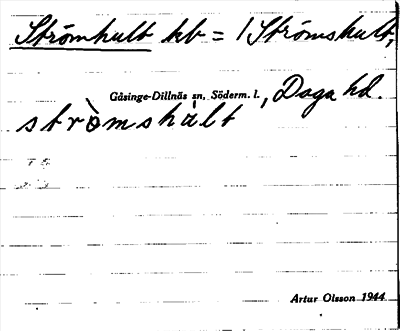 Strömhult hb = /Strömshult,
Gåsinge-Dillnäs sn, Söderm. l., Daga hd.
stròmshàlt
Artur Olsson 1944